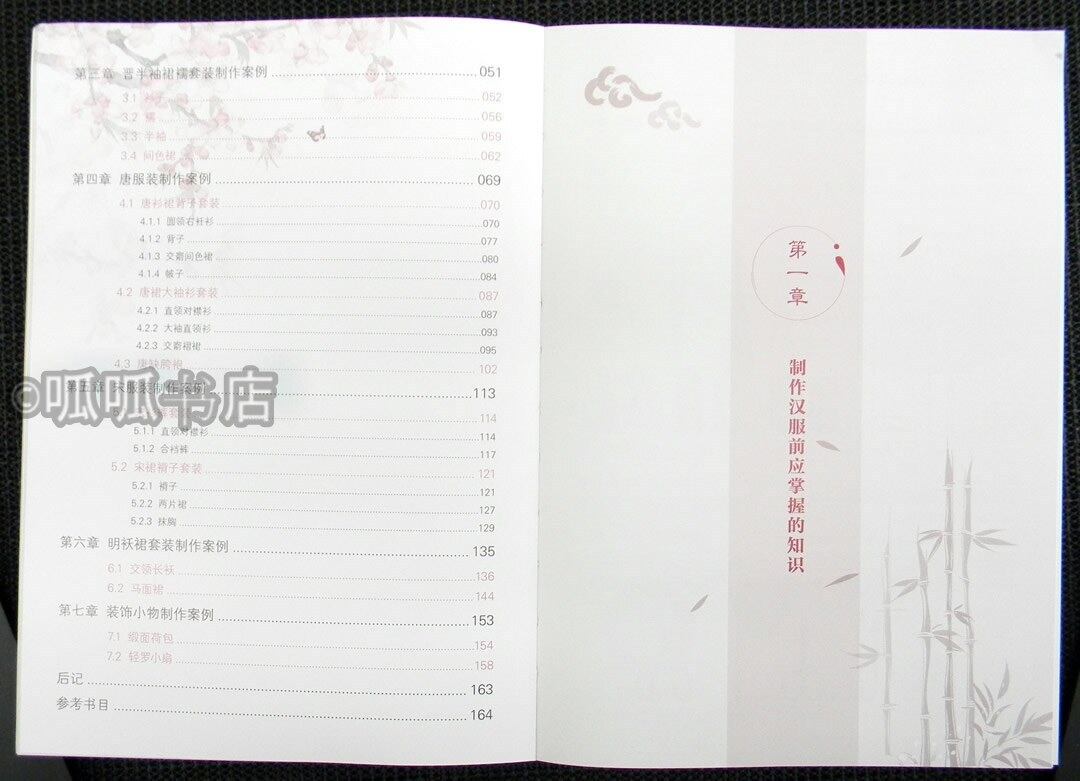 第三章 晋半袖裙襦套装制作案例 051
3.1 衫子 052
3.2 襦 056
3.3 半袖 059
3.4 间色裙 062
第四章 唐服装制作案例 069
4.1 唐衫裙背子套装 070
4.1.1 圆领右衽衫 070
4.1.2 背子 077
4.1.3 交窬间色裙 080
4.1.4 帔子 084
4.2 唐裙大袖衫套装 087
4.2.1 直领对襟衫 087
4.2.2 大袖直领衫 093
4.2.3 交窬褶裙 095
4.3 唐缺胯袍 102
©呱呱书店
第五章 宋服装制作案例 113
114
5.1.1 直领对襟衫 114
5.1.2 合裆裤 117
5.2 宋裙褙子套装 121
5.2.1 褙子 121
5.2.2 两片裙 127
5.2.3 抹胸 129
第六章 明袄裙套装制作案例 135
6.1 交领长袄 136
6.2 马面裙 144
第七章 装饰小物制作案例 153
7.1 缎面荷包 154
7.2 轻罗小扇 158
后记 163
参考书目 164
第一章
制作汉服前应掌握的知识